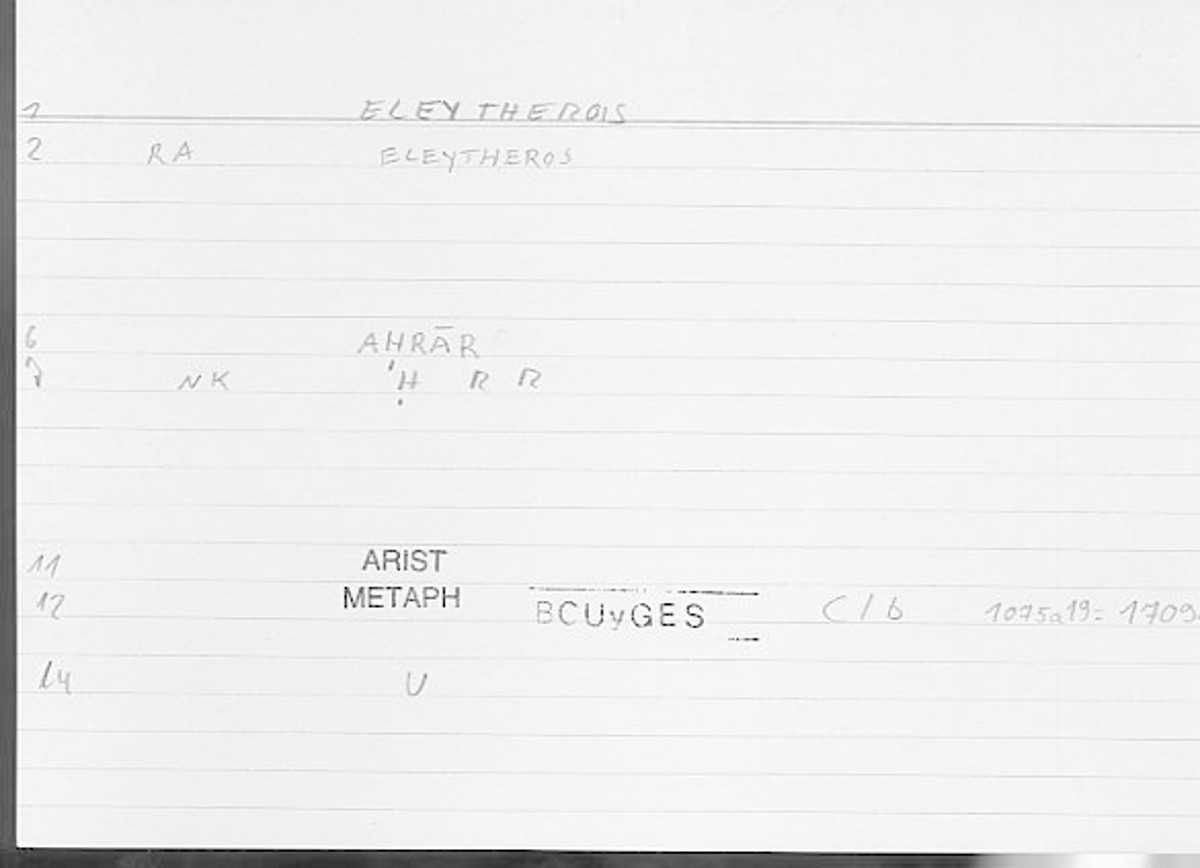 1 ELEYTHEROIS
2 RA ELEYTHEROS
6 AHRĀR
7 NK 'Ḥ R R
11 ARIST
12 METAPH BCUyGES C/b 1075a19= 1709
14 U